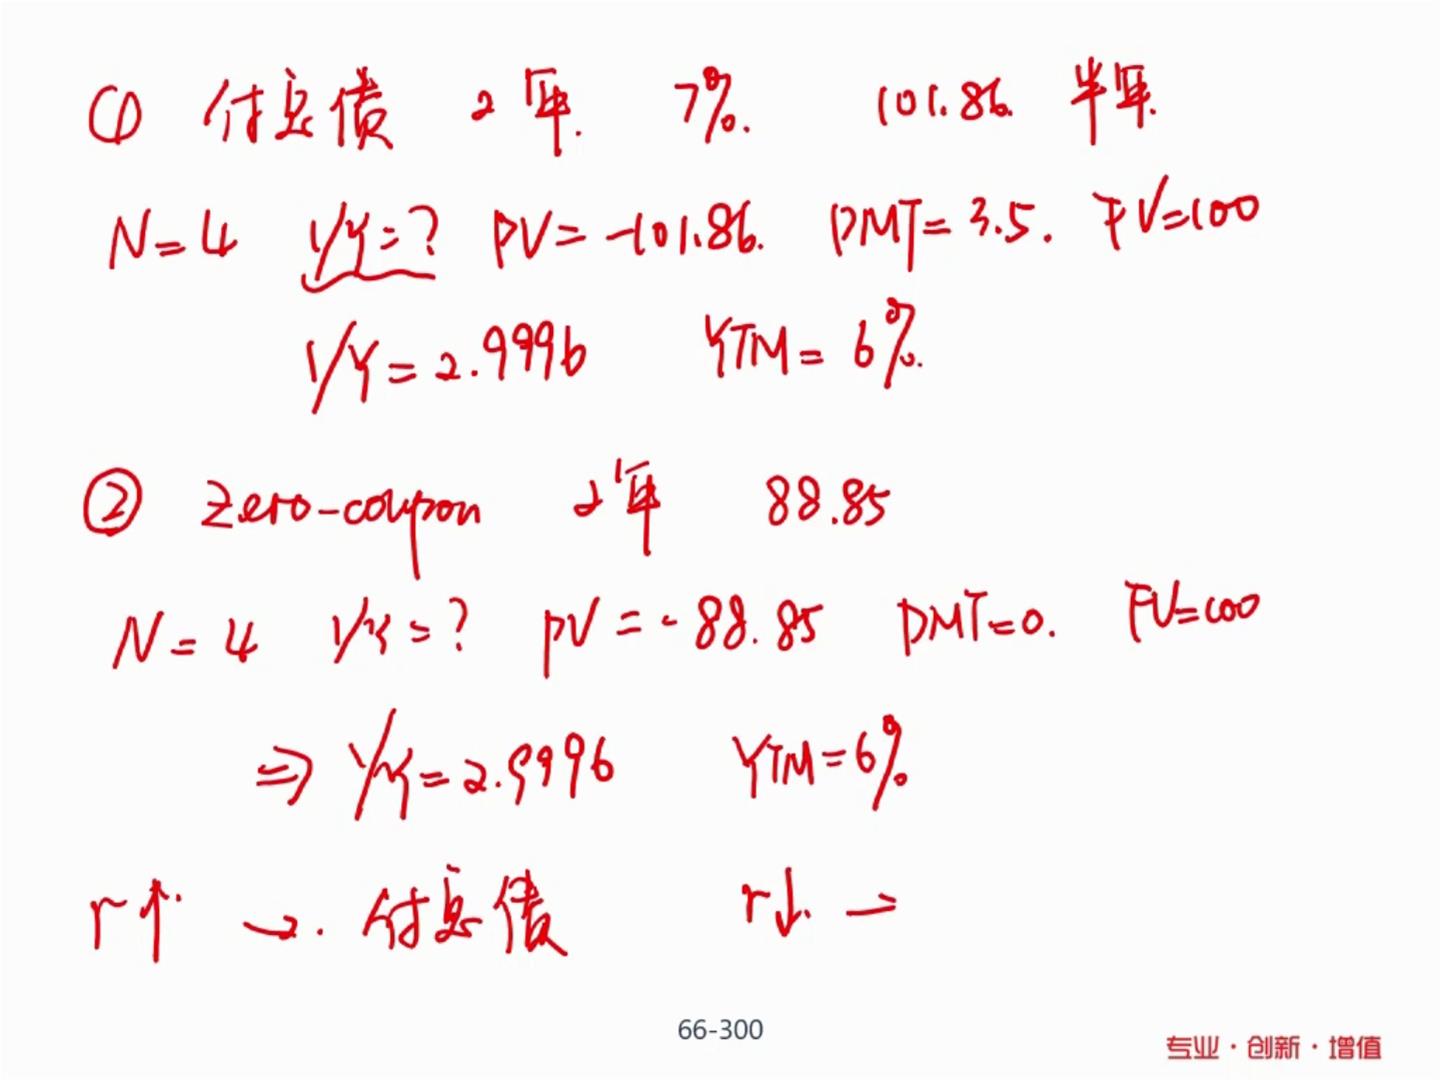 ① 付息债 2年. 7%. 101.86. 半年.
N=4 I/Y=? PV=-101.86. PMT=3.5. FV=100
I/Y=2.9996 YTM=6%.
② Zero-coupon 2年 88.85
N=4 I/Y=? PV=-88.85 PMT=0. FV=100
⇒ I/Y=2.9996 YTM=6%
r↑. →. 付息债 r↓. →
66-300
专业·创新·增值